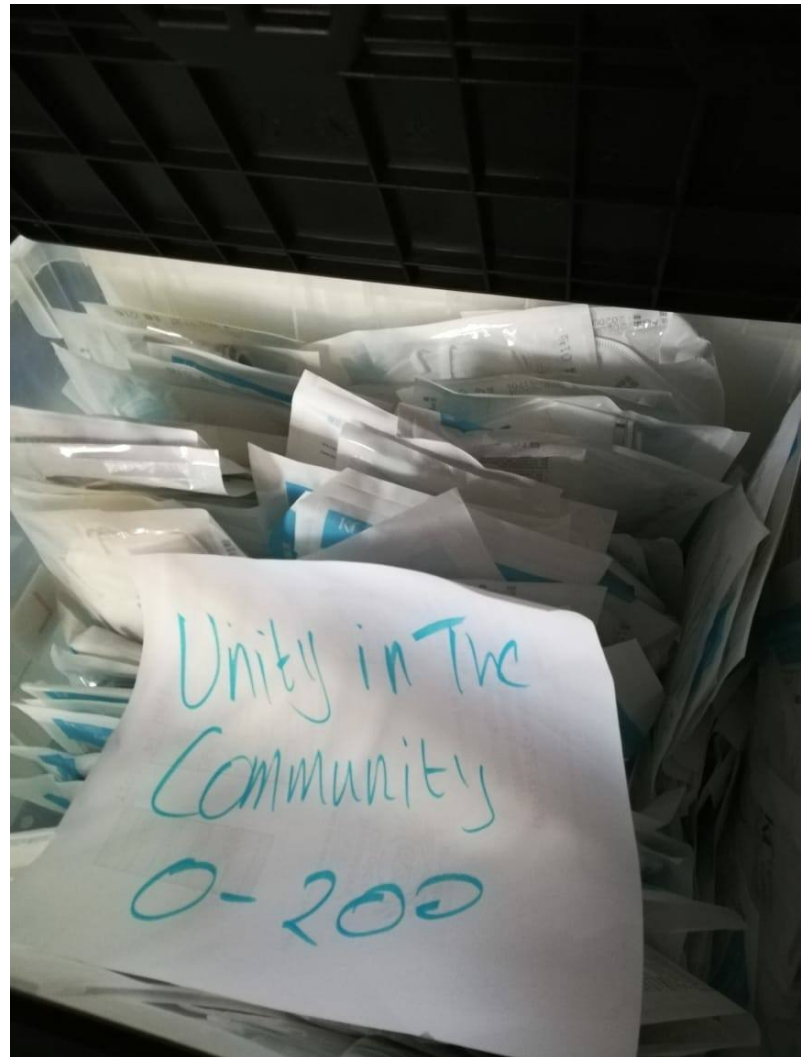 Unity in The
Community
0-200